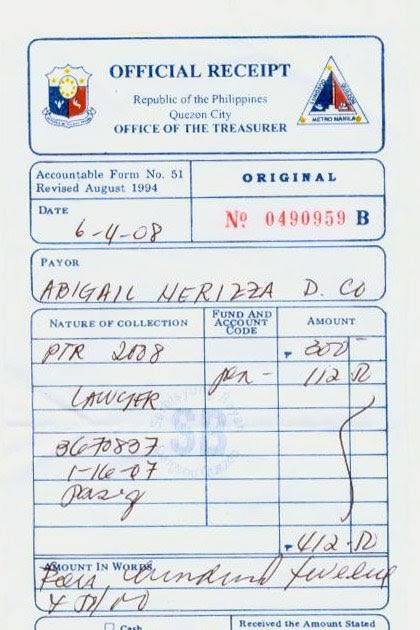 OFFICIAL RECEIPT
Republic of the Philippines
Quezon City
OFFICE OF THE TREASURER
METRO MANILA
Accountable Form No. 51
Revised August 1994
ORIGINAL
DATE
6-4-08
Nº 0490959 B
PAYOR
ABIGAIL NERIZZA D. CO
NATURE OF COLLECTION
FUND AND ACCOUNT CODE
AMOUNT
PTR 2008 300-
pen - 112 50
LAWYER
3670837
1-16-07
Pasig
412 50
AMOUNT IN WORDS
Four hundred twelve
& 50/00
Cash
Received the Amount Stated